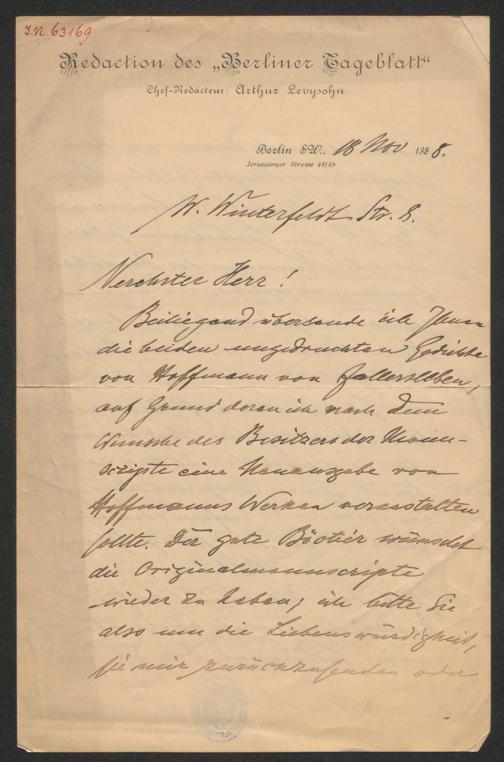 I.N. 63169
Redaction des „Berliner Tageblatt“
Chef-Redacteur: Arthur Levysohn
Berlin SW., 18 Nov 1888.
Jerusalemer Strasse 48/49
W. Winterfeldt Str. 8.
Verehrter Herr!
Beiliegend übersende ich Ihnen
die beiden ungedruckten Gedichte
von Hoffmann von Fallersleben,
auf Grund deren ich nach dem
Wunsche des Besitzers der Manu-
scripte eine Neuausgabe von
Hoffmanns Werken veranstalten
sollte. Der gute Böotier wünscht
die Originalmanuscripte
wieder zu haben; ich bitte Sie
also um die Liebenswürdigkeit,
sie mir zurückzusenden oder